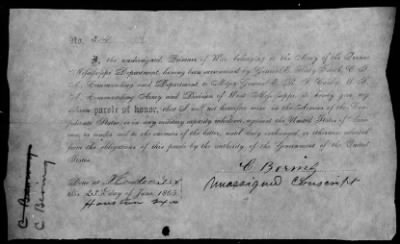 No. 
I, the undersigned, Prisoner of War, belonging to the Army of the Trans-
Mississippi Department, having been surrendered by General E. Kirby Smith, C. S.
A., Commanding said Department, to Major General E. R. S. Canby, U. S.
A., Commanding Army and Division of West Mississippi, do hereby give my
solemn parole of honor, that I will not hereafter serve in the Armies of the Con-
federate States, or in any military capacity whatever, against the United States of Amer-
ica, or render aid to the enemies of the latter, until duly exchanged, or otherwise released
from the obligations of this parole by the authority of the Government of the United
States.
C. Bering
Unassigned Conscript
Done at Houston Tex
this 25th day of June 1865
Houston Texas
C Bering
C Bering